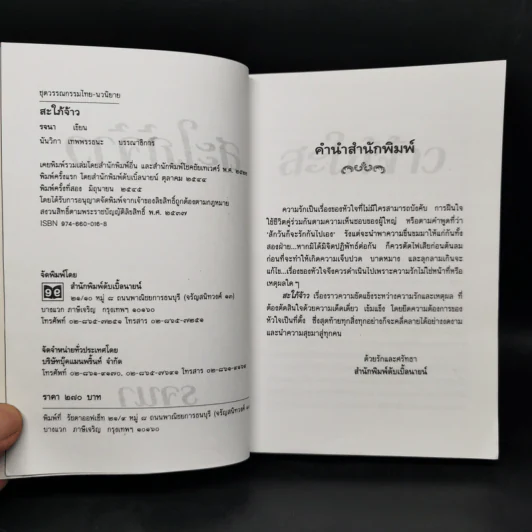 ชุดวรรณกรรมไทย-นวนิยาย
สะใภ้จ้าว
รจนา เขียน
นันวิภา เทพพรธนะ บรรณาธิการ
เคยพิมพ์รวมเล่มโดยสำนักพิมพ์อื่น และสำนักพิมพ์โชคชัยเทเวศร์ พ.ศ.
พิมพ์ครั้งแรก โดยสำนักพิมพ์ดับเบิ้ลนายน์ ตุลาคม ๒๕๔๔
พิมพ์ครั้งที่สอง มิถุนายน ๒๕๔๕
โดยได้รับการอนุญาตจัดพิมพ์จากเจ้าของลิขสิทธิ์ถูกต้องตามกฎหมาย
สงวนสิทธิ์ตามพระราชบัญญัติลิขสิทธิ์ พ.ศ. ๒๕๓๗
ISBN 974-860-016-8
จัดพิมพ์โดย
สำนักพิมพ์ดับเบิ้ลนายน์
๒๑/๑๐ หมู่ ๘ ถนนพาณิชยการธนบุรี (จรัญสนิทวงศ์ ๑๓)
บางแวก ภาษีเจริญ กรุงเทพฯ ๑๐๑๖๐
โทรศัพท์ ๐๒-๘๖๕-๗๒๕๑ โทรสาร ๐๒-๘๖๕-๗๒๕๑
จัดจำหน่ายทั่วประเทศโดย
บริษัทบุ๊คแมนพริ้นท์ จำกัด
โทรศัพท์ ๐๒-๘๖๑-๔๑๗๐, ๐๒-๘๖๕-๗๖๔๑ โทรสาร
ราคา ๒๗๐ บาท
พิมพ์ที่ รัยดาออฟเซ็ท ๒๑/๙ หมู่ ๘ ถนนพาณิชยการธนบุรี
บางแวก ภาษีเจริญ กรุงเทพฯ ๑๐๑๖๐
คำนำสำนักพิมพ์
ความรักเป็นเรื่องของหัวใจที่ไม่มีใครสามารถบังคับ การฝืนใจ
ใช้ชีวิตคู่ร่วมกันตามความเห็นชอบของผู้ใหญ่ หรือตามคำพูดที่ว่า
'สักวันก็จะรักกันไปเอง' รังแต่จะนำพาความขื่นขมมาให้แก่กันทั้ง
สองฝ่าย...หากมิได้มีจิตปฏิพัทธ์ต่อกัน ก็ควรตัดไฟเสียก่อนต้นลม
ก่อนที่จะทำให้เกิดความเจ็บปวด บาดหมาง และลุกลามเกินจะ
แก้ไข...เรื่องของหัวใจจึงควรดำเนินไปเพราะความรักไม่ใช่หน้าที่หรือ
เหตุผลใด ๆ
สะใภ้จ้าว เรื่องราวความขัดแย้งระหว่างความรักและเหตุผล ที่
ต้องตัดสินใจด้วยความเด็ดเดี่ยว เข้มแข็ง โดยยึดความต้องการของ
หัวใจเป็นที่ตั้ง ซึ่งสุดท้ายทุกสิ่งทุกอย่างก็จะคลี่คลายได้อย่างงดงาม
และนำความสุขมาสู่ทุกคน
ด้วยรักและศรัทธา
สำนักพิมพ์ดับเบิ้ลนายน์